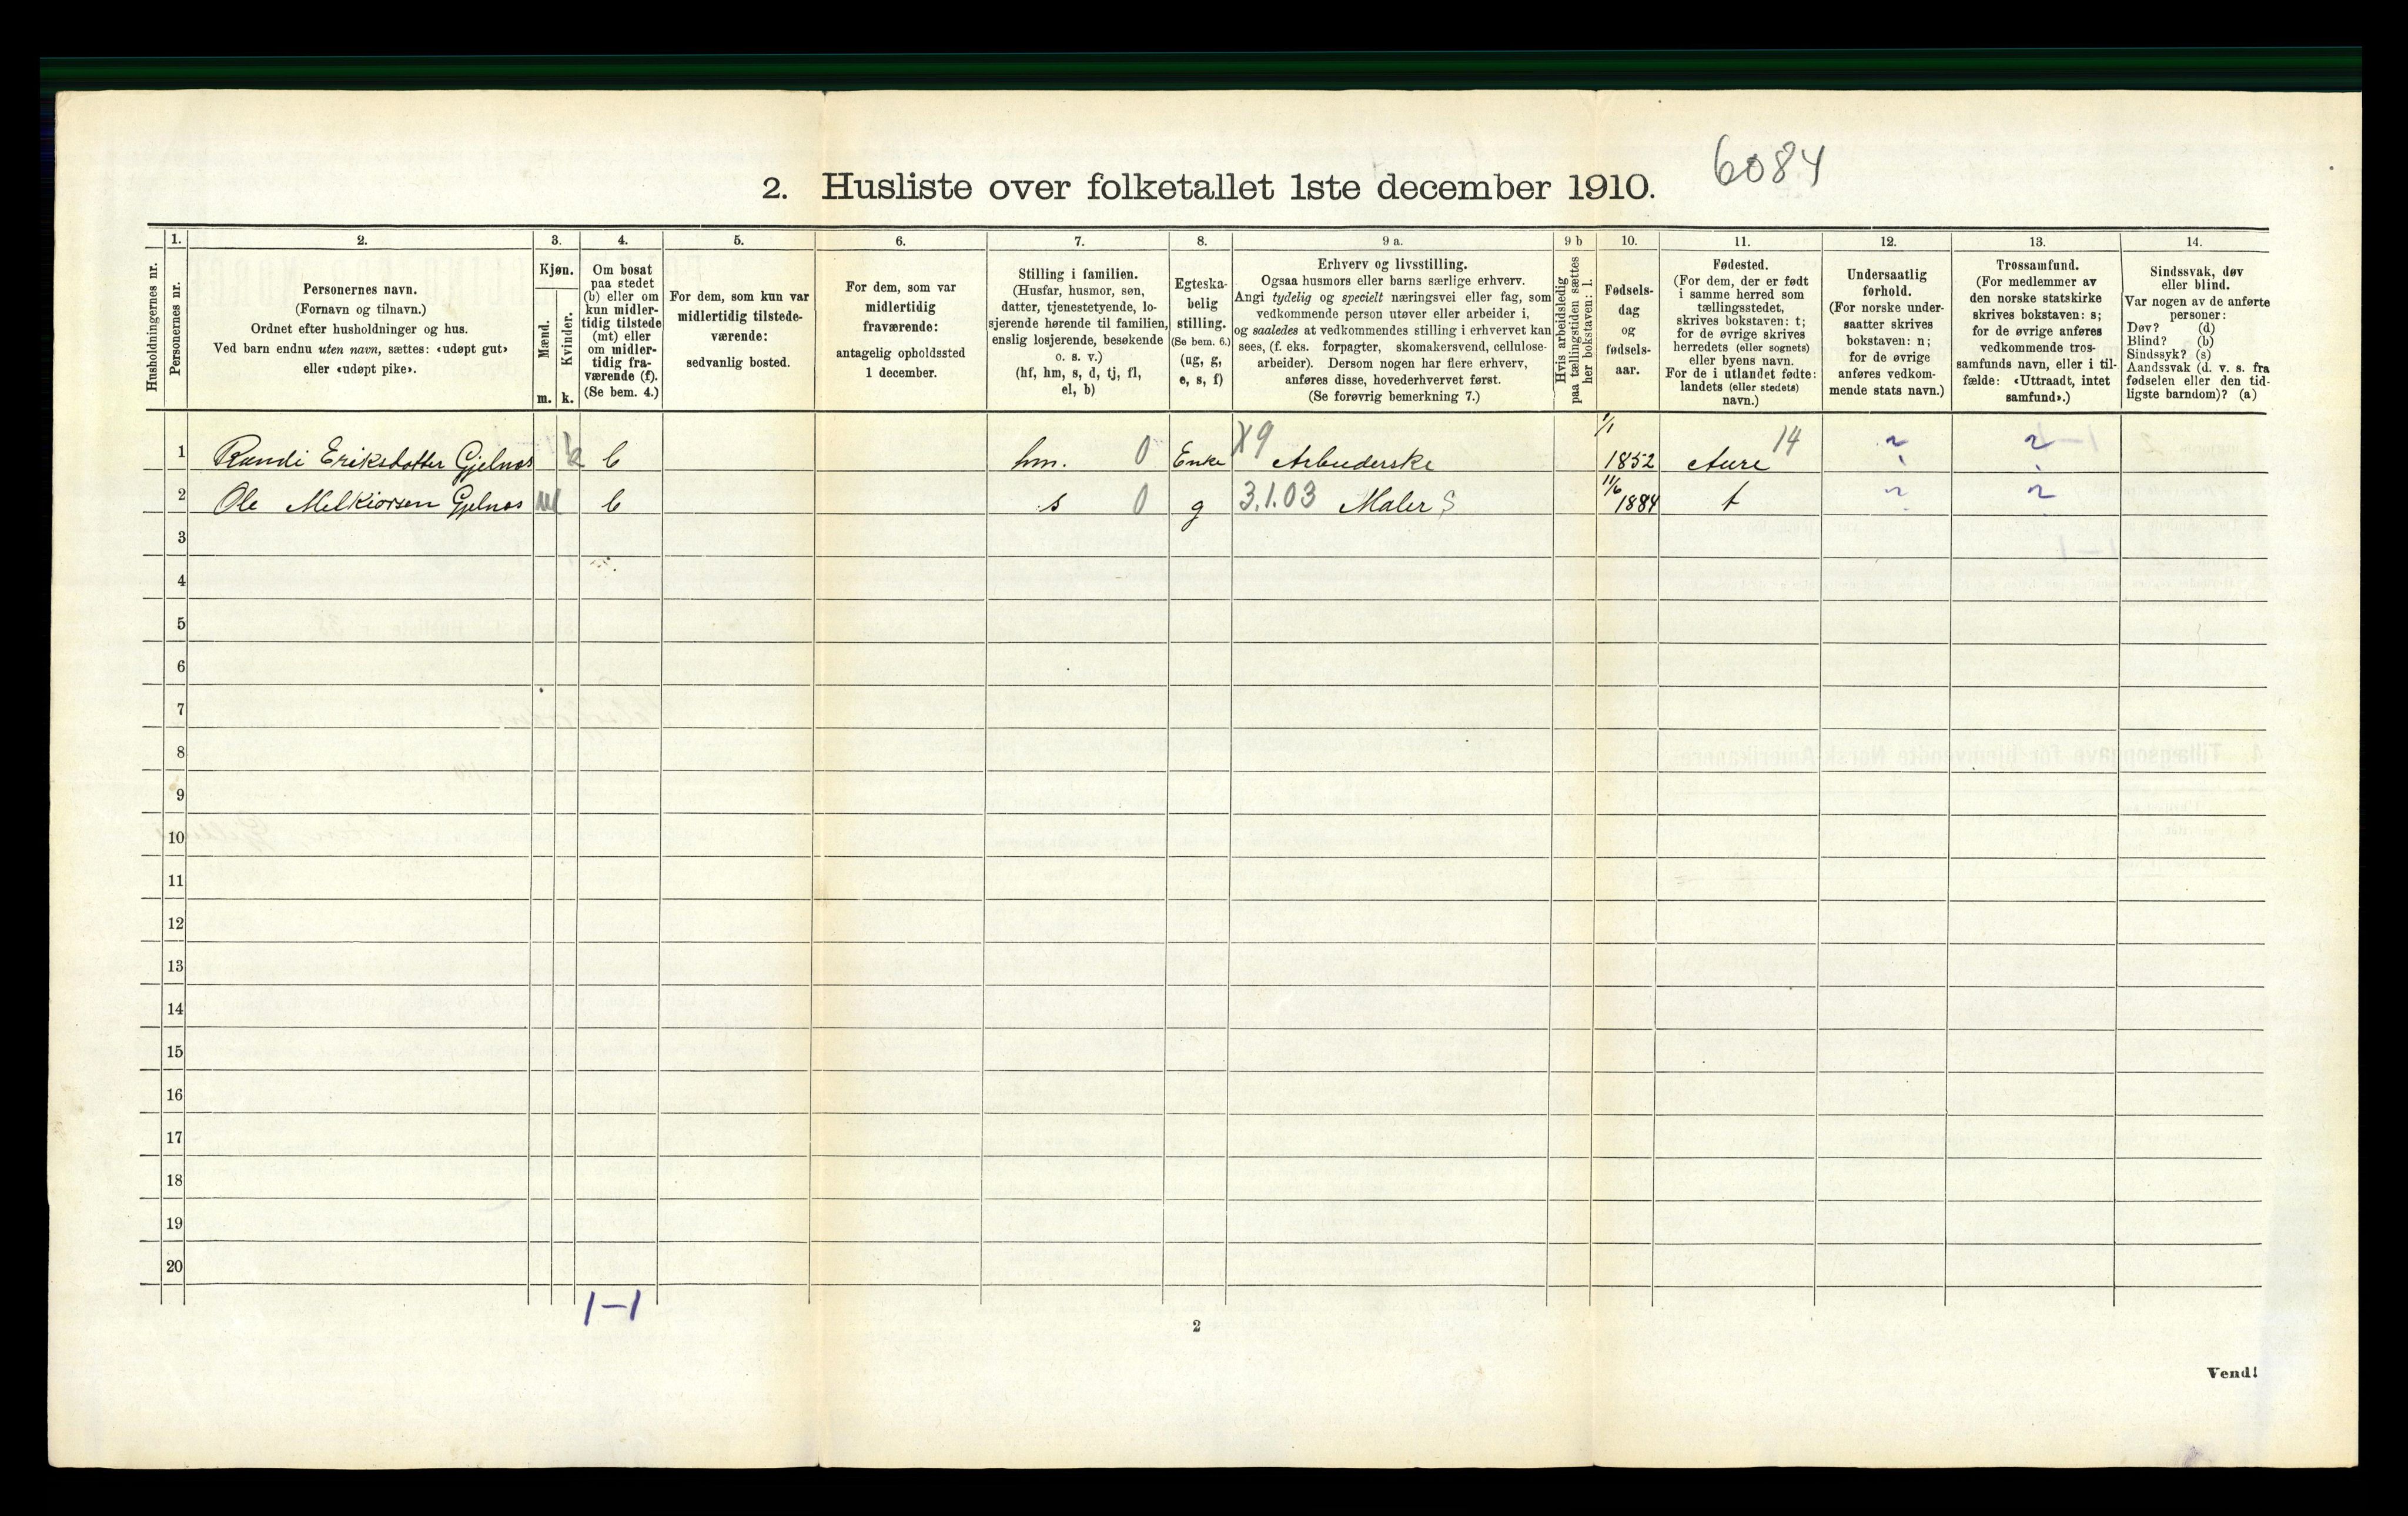 6084
2. Husliste over folketallet 1ste december 1910.
Husholdningernes nr.
1.
Personernes nr.
2.
Personernes navn.
(Fornavn og tilnavn.)
Ordnet efter husholdninger og hus.
Ved barn endnu uten navn, sættes: «udøpt gut»
eller «udøpt pike».
3.
Kjøn.
Mænd.
Kvinder.
m. k.
4.
Om bosat
paa stedet
(b) eller om
kun midler-
tidig tilstede
(mt) eller
om midler-
tidig fra-
værende (f).
(Se bem. 4.)
5.
For dem, som kun var
midlertidig tilstede-
værende:
sedvanlig bosted.
6.
For dem, som var
midlertidig
fraværende:
antagelig opholdssted
1 december.
7.
Stilling i familien.
(Husfar, husmor, søn,
datter, tjenestetyende, lo-
sjerende hørende til familien,
enslig losjerende, besøkende
o. s. v.)
(hf, hm, s, d, tj, fl,
el, b)
8.
Egteska-
belig
stilling.
(Se bem. 6.)
(ug, g,
e, s, f)
9 a.
Erhverv og livsstilling.
Ogsaa husmors eller barns særlige erhverv.
Angi tydelig og specielt næringsvei eller fag, som
vedkommende person utøver eller arbeider i,
og saaledes at vedkommendes stilling i erhvervet kan
sees, (f. eks. forpagter, skomakersvend, cellulose-
arbeider). Dersom nogen har flere erhverv,
anføres disse, hovederhvervet først.
(Se forøvrig bemerkning 7.)
9 b
Hvis arbeidsledig
paa tællingstiden sættes
her bokstaven: l.
10.
Fødsels-
dag
og
fødsels-
aar.
11.
Fødested.
(For dem, der er født
i samme herred som
tællingsstedet,
skrives bokstaven: t;
for de øvrige skrives
herredets (eller sognets)
eller byens navn.
For de i utlandet fødte:
landets (eller stedets)
navn.)
12.
Undersaatlig
forhold.
(For norske under-
saatter skrives
bokstaven: n;
for de øvrige
anføres vedkom-
mende stats navn.)
13.
Trossamfund.
(For medlemmer av
den norske statskirke
skrives bokstaven: s;
for de øvrige anføres
vedkommende tros-
samfunds navn, eller i til-
fælde: «Uttraadt, intet
samfund».)
14.
Sindssvak, døv
eller blind.
Var nogen av de anførte
personer:
Døv? (d)
Blind? (b)
Sindssyk? (s)
Aandssvak (d. v. s. fra
fødselen eller den tid-
ligste barndom)? (a)
1 Randi Eriksdatter Gjelnes k b hm. 0 Enke X9 Arbuderske 1/1 1852 Aure 14 n n
2 Ole Melkiorsen Gjelnes m b s 0 g 3.1.03 Maler S 11/6 1884 t n n
3
4
5
6
7
8
9
10
11
12
13
14
15
16
17
18
19
20
1-1
2
Vend!